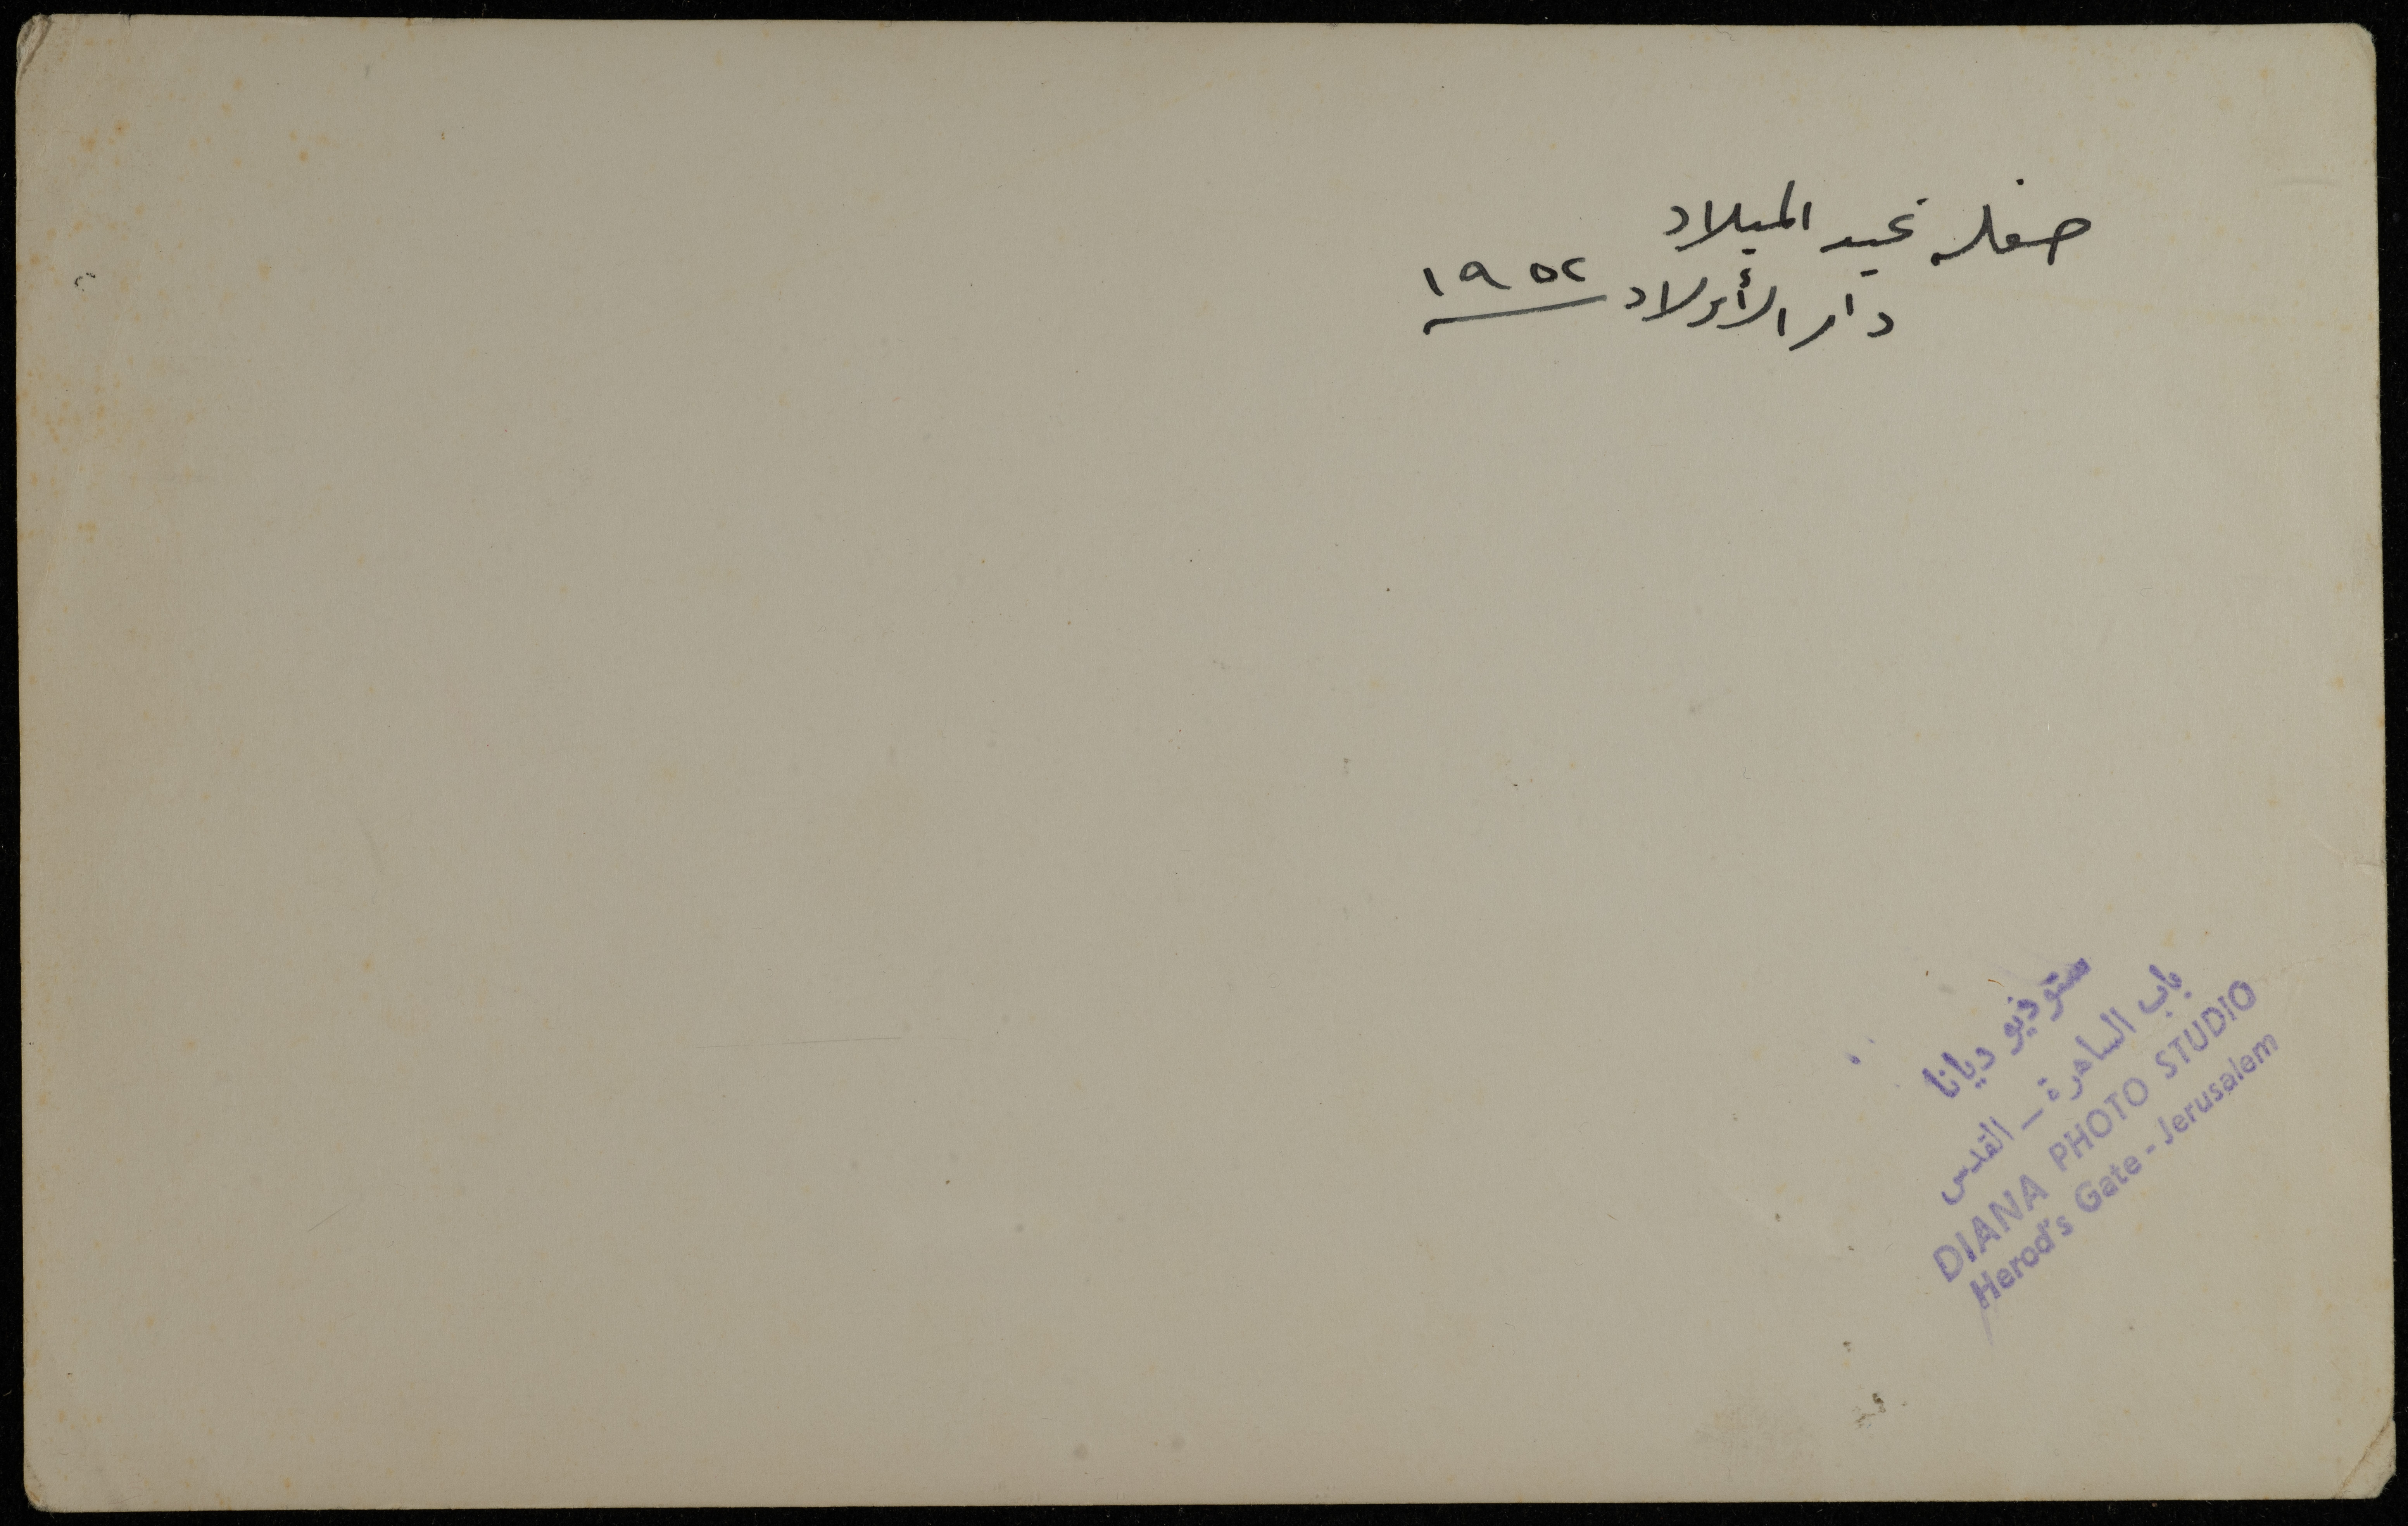 حفله عيد الميلاد
دار الأولاد ١٩٥٢
ستوديو ديانا
باب الساهرة - القدس
DIANA PHOTO STUDIO
Herod's Gate - Jerusalem